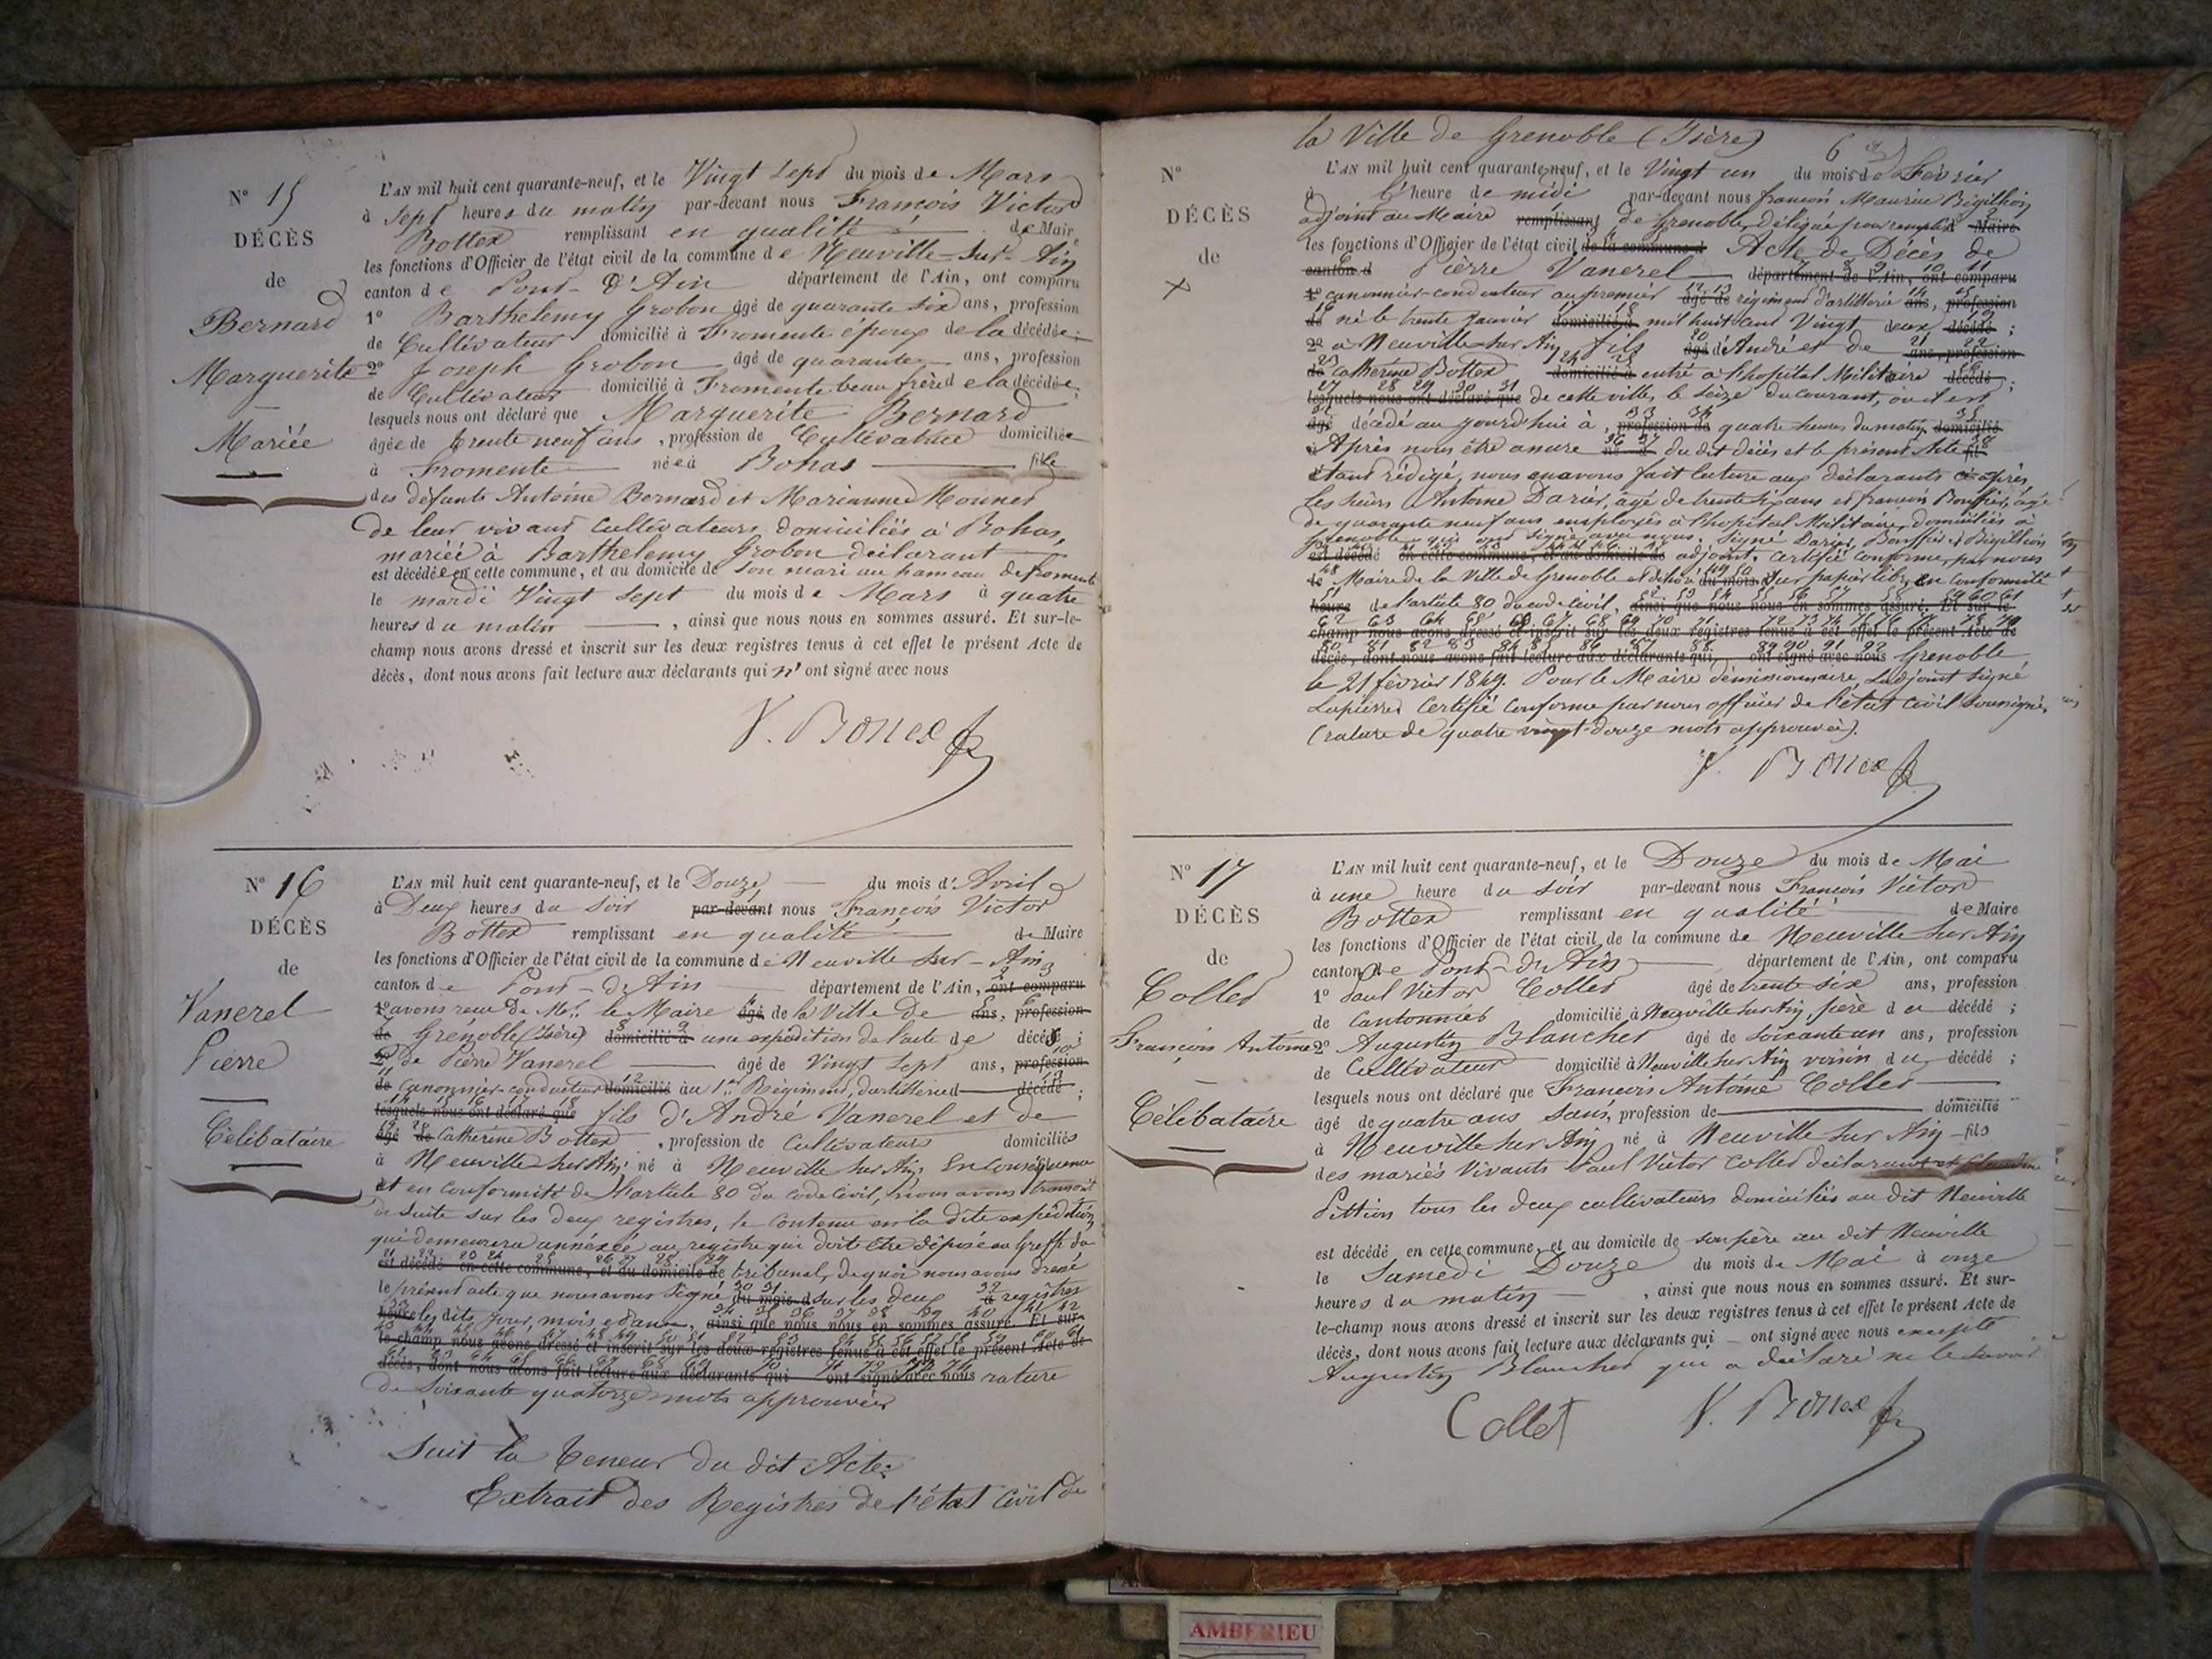 N° 15
DÉCÈS
de
Bernard
Marguerite
Mariée
L'AN mil huit cent quarante-neuf, et le Vingt Sept du mois de Mars
à Sept heures du matin par-devant nous François Victor
Bottex remplissant en qualité de Maire
les fonctions d'Officier de l'état civil de la commune de Neuville-sur-Ain
canton de Pont-d'Ain département de l'Ain, ont comparu
1° Barthelemy Grobon âgé de quarante six ans, profession
de Cultivateur domicilié à Fromente époux de la décédée;
2° Joseph Grobon âgé de quarante ans, profession
de Cultivateur domicilié à Fromente beau frère de la décédée;
lesquels nous ont déclaré que Marguerite Bernard
âgée de trente neuf ans, profession de Cultivatrice domiciliée
à Fromente née à Bohas fille
des défunts Antoine Bernard et Marianne Mounet
de leur vivant cultivateurs domiciliés à Bohas,
mariée à Barthelemy Grobon déclarant
est décédée en cette commune, et au domicile de son mari au hameau de fromente
le mardi Vingt Sept du mois de Mars à quatre
heures du matin, ainsi que nous nous en sommes assuré. Et sur-le-
champ nous avons dressé et inscrit sur les deux registres tenus à cet effet le présent Acte de
décès, dont nous avons fait lecture aux déclarants qui n'ont signé avec nous
V. Bottex
N° 16
DÉCÈS
de
Vanerel
Pierre
Célibataire
L'AN mil huit cent quarante-neuf, et le Douze du mois d'Avril
à Deux heures du Soir par-devant nous François Victor
Bottex remplissant en qualité de Maire
les fonctions d'Officier de l'état civil de la commune de Neuville sur-Ain
canton de Pont-d'Ain département de l'Ain, ont comparu
1° avons reçu de Mr. le Maire âgé de la Ville de ans, profession
de Grenoble (Isère) domicilié à une expédition de l'acte de décès;
2° de Pierre Vanerel âgé de Vingt Sept ans, profession
de canonnier-conducteur domicilié au 1er Régiment, d'artillerie d décédé;
lesquels nous ont déclaré que fils d'André Vanerel et de
âgé de Catherine Bottex, profession de Cultivateurs domiciliés
à Neuville sur Ain né à Neuville sur Ain. En conséquence
et en conformité de l'article 80 du code civil, nous avons transcrit
de suite sur les deux registres, le contenu en la dite expédition,
qui demeurera annexée au registre qui doit être déposé au Greffe du
est décédé en cette commune, et au domicile de tribunal, de quoi nous avons dressé
le présent acte que nous avons signé du mois d sur les deux à registres
heure les dits jour, mois et an, ainsi que nous nous en sommes assuré. Et sur-
le-champ nous avons dressé et inscrit sur les deux registres tenus à cet effet le présent Acte de
décès, dont nous avons fait lecture aux déclarants qui ont signé avec nous rature
de Soixante quatorze mots approuvée
Suit la teneur du dit Acte:
Extrait des Registres de l'état Civil de
la Ville de Grenoble (Isère)
N°
DÉCÈS
de
L'AN mil huit cent quarante-neuf, et le Vingt un du mois de Février
à l'heure de midi par-devant nous françois Maurice Bigillion
adjoint au Maire remplissant de Grenoble, délégué pour remplir Maire
les fonctions d'Officier de l'état civil de la commune d Acte de Décès de
canton d Pierre Vanerel département de l'Ain, ont comparu
1° canonnier-conducteur au premier âgé de régiment d'artillerie ans, profession
de né le trente Janvier domicilié à mil huit cent Vingt deux décédé;
2° à Neuville sur Ain fils âgé d'André et de ans, profession
de Catherine Bottex domicilié à entré à l'hopital Militaire décédé;
lesquels nous ont déclaré que de cette ville, le Seize du courant, où il est
âgé décédé aujourd'hui à, profession de quatre heures du matin domicilié
à Après nous être assuré né à du dit décès et le présent Acte fil
étant rédigé, nous en avons fait lecture aux déclarants ci-après,
Les Sieurs Antoine Darier, âgé de trente six ans et françois Bouffier, âgé
de quarante neuf ans employés à l'hopital Militaire, domiciliés à
Grenoble qui ont signé avec nous. Signé Darier, Bouffier et Bigillion
est décédé en cette commune, et au domicile de adjoint. Certifié conforme, par nous
le Maire de la Ville de Grenoble et délivré du mois d sur papier libre, en conformité
heure de l'article 80 du code Civil. ainsi que nous nous en sommes assuré. Et sur-le-
champ nous avons dressé et inscrit sur les deux registres tenus à cet effet le présent Acte de
décès, dont nous avons fait lecture aux déclarants qui ont signé avec nous Grenoble
le 21 février 1849. Pour le Maire démissionnaire, L'adjoint signé
Lapierre Certifié conforme par nous officier de l'état civil soussigné,
(rature de quatre vingt-douze mots approuvée).
V. Bottex
N° 17
DÉCÈS
de
Collet
François Antoine
Célibataire
L'AN mil huit cent quarante-neuf, et le Douze du mois de Mai
à une heure du soir par-devant nous François Victor
Bottex remplissant en qualité de Maire
les fonctions d'Officier de l'état civil de la commune de Neuville sur Ain
canton de Pont-d'Ain département de l'Ain, ont comparu
1° Paul Victor Collet âgé de trente six ans, profession
de Cantonnier domicilié à Neuville sur Ain père du décédé;
2° Augustin Blanchet âgé de soixante un ans, profession
de Cultivateur domicilié à Neuville sur Ain voisin du décédé;
lesquels nous ont déclaré que François Antoine Collet
âgé de quatre ans Sans, profession de domicilié
à Neuville sur Ain né à Neuville sur Ain fils
des mariés Vivants Paul Victor Collet déclarant et Claudine
Pittion tous les deux cultivateurs domiciliés au dit Neuville
est décédé en cette commune, et au domicile de son père au dit Neuville
le Samedi Douze du mois de Mai à onze
heures du matin, ainsi que nous nous en sommes assuré. Et sur-
le-champ nous avons dressé et inscrit sur les deux registres tenus à cet effet le présent Acte de
décès, dont nous avons fait lecture aux déclarants qui ont signé avec nous excepté
Augustin Blanchet qui a déclaré ne le savoir
Collet V. Bottex
AMBERIEU